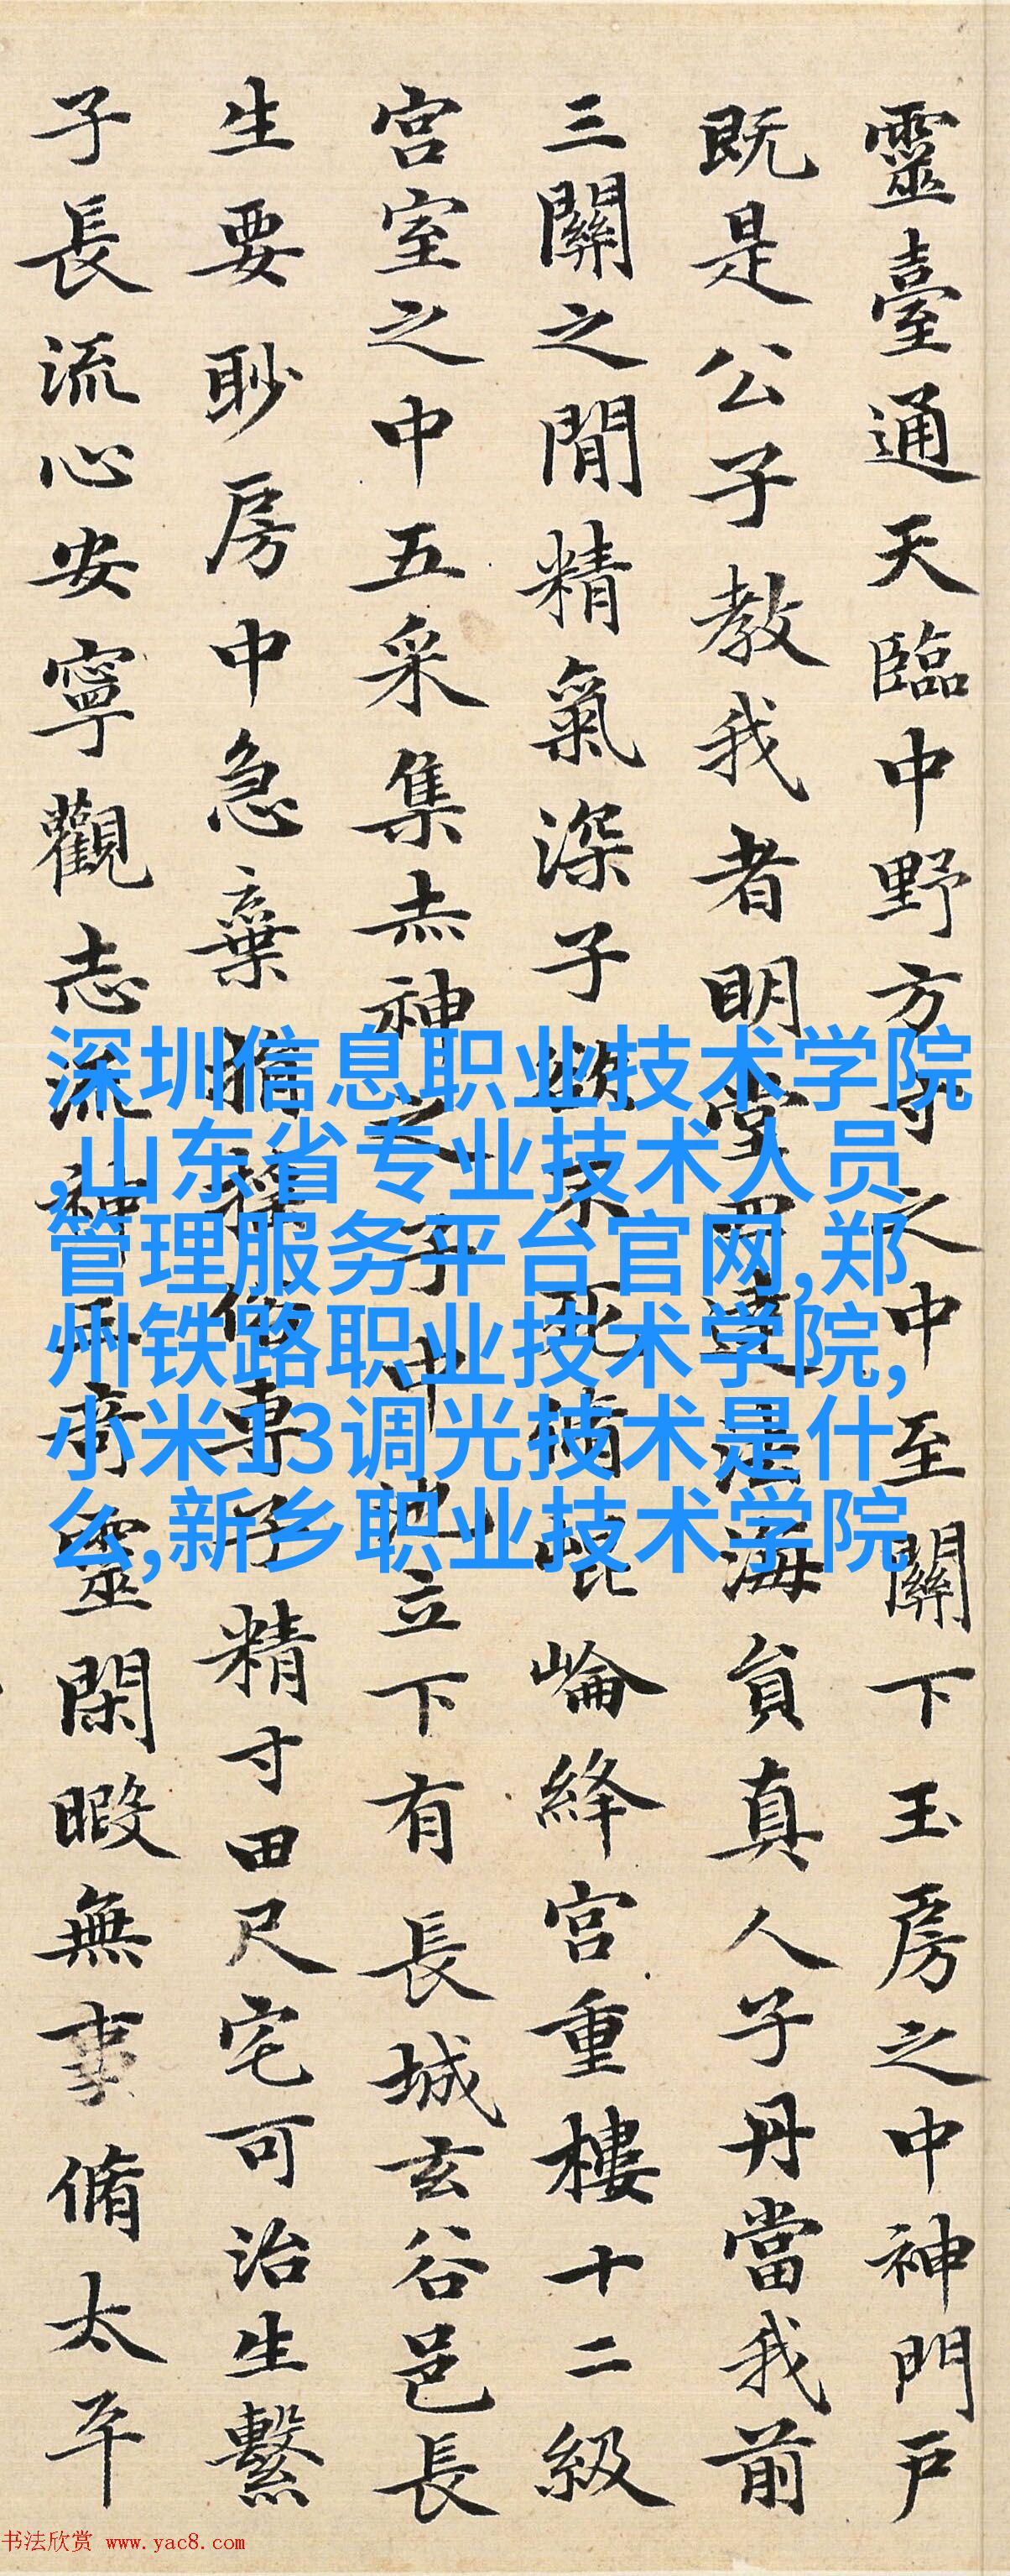 靈臺通天臨中野方寸之中至關下玉房之中神門戶
既是公子教我者明堂四達法海員真人子丹當我前
三關之閒精氣深子欲不死脩崐崘絳宮重樓十二級
宮室之中五采集赤神之子中池立下有長城玄谷邑長
生要眇房中急棄捐俗專子精寸田尺宅可治生繫
子長流心安寧觀志流神三奇靈閑暇無事脩太平
深圳信息职业技术学院
,山东省专业技术人员
管理服务平台官网,郑
州铁路职业技术学院,
小米13调光技术是什
么,新乡职业技术学院
书法欣赏 www.yac8.com